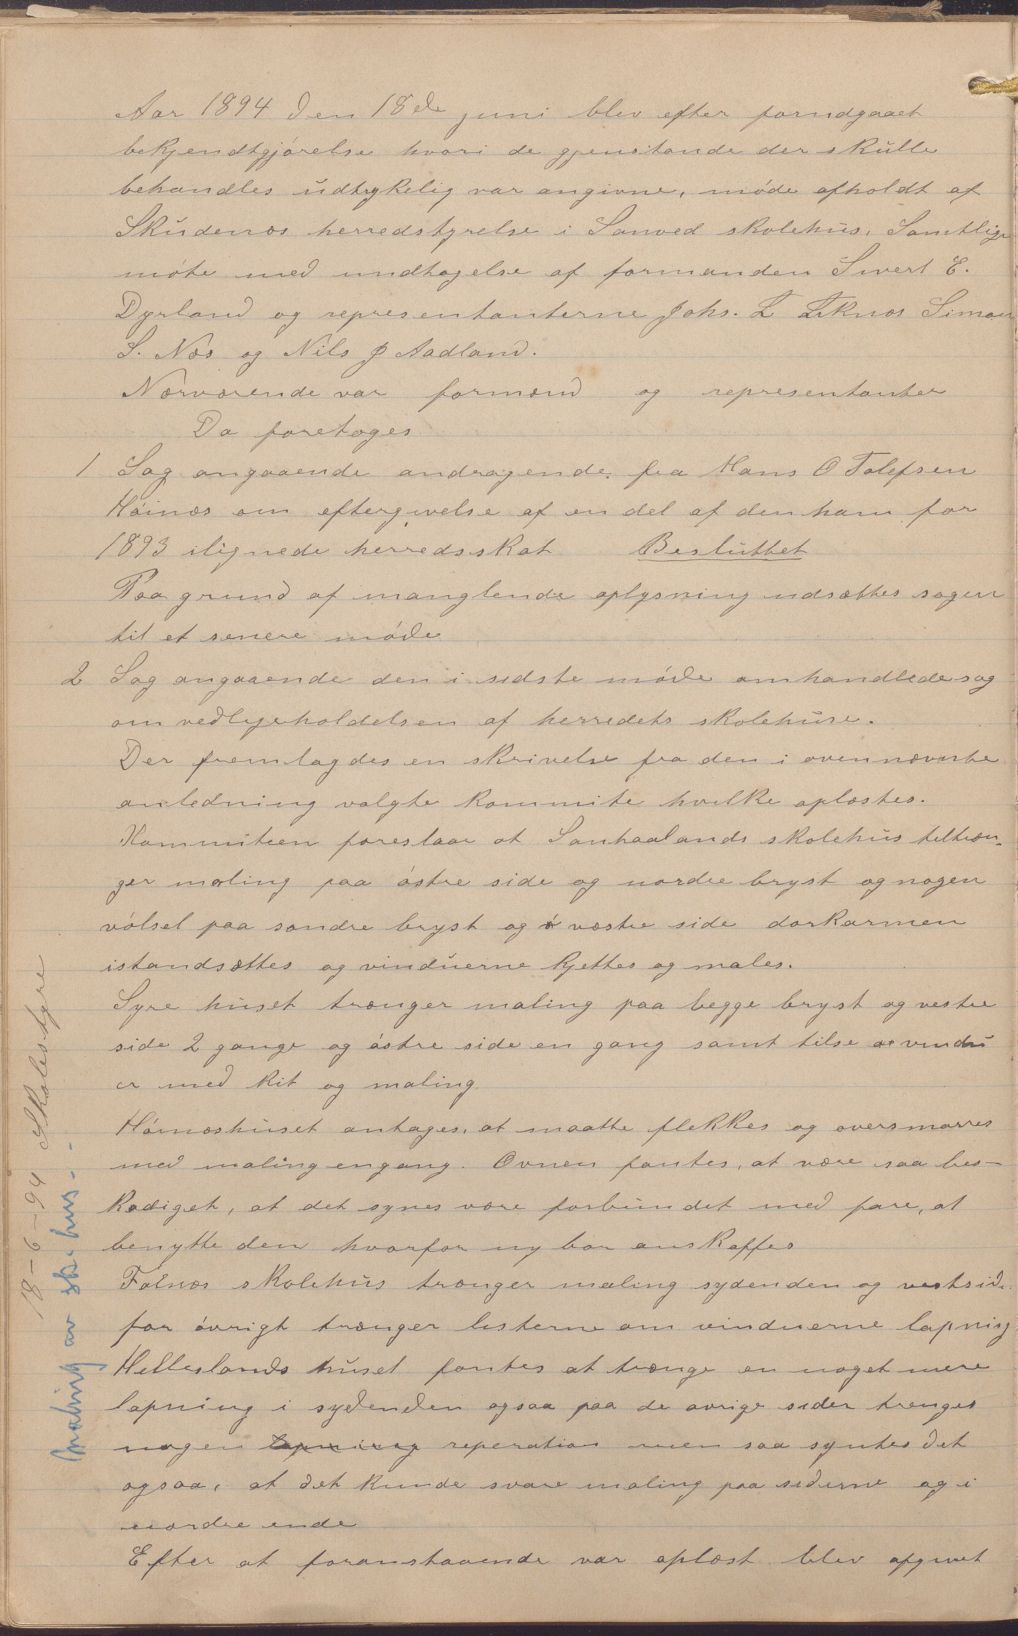 Aar 1894 den 18de juni blev efter forudgaaet
bekjendtgjørelse hvori de gjenstande der skulle
behandles udtrykelig var angivne, møde afholdt af
Skudenæs herredstyrelse i Sanved skolehus. Samtlige
møte med undtagelse af formanden Sivert E.
Dyrland og representanterne Johs. L Liknæs Simon
S. Næs og Nils J Aadland.
Nærværende var formænd og representanter
Da foretoges
1 Sag angaaende andragende fra Hans O Tolefsen
Høinæs om eftergivelse af en del af den ham for
1893 ilignede herredsskat Besluttet
Paa grund af manglende oplysning udsættes sagen
til et senere møde
2 Sag angaaende den i sidste møde omhandlede sag
om vedligeholdelsen af herredets skolehuse.
Der fremlagdes en skrivelse fra den i ovennævnte
anledning valgte kommite hvilke oplæstes.
Kommiteen foreslaar at Sanhaalands skolehus tiltræn-
ger maling paa østre side og nordre bryst og nogen
vølsel paa søndre bryst og vestre side dørkarmen
istandsættes og vinduerne kjettes og males.
Syre huset trænger maling paa begge bryst og vestre
side 2 gange og østre side en gang samt tilse vindu
er med kit og maling
Høinæshuset antages, at maatte flekkes og oversmørres
med maling engang. Ovnen fantes, at være saa bes-
kadiget, at det synes være forbundet med fare, at
benytte den hvorfor ny bør anskaffes
Falnæs skolehus trænger maling sydenden og vestside
for øvrigt trænger listerne om vinduerne lapning
Hellelands huset fantes at trænge en noget mere
lapning i sydenden ogsaa paa de øvrige sider trenges
nogen lapning reperation men saa syntes det
ogsaa, at det kunde svare maling paa siderne og i
nordre ende
Efter at foranstaaende var oplæst blev afgivet
18-6-94 Skolestyre
Maling av sk. hus - -